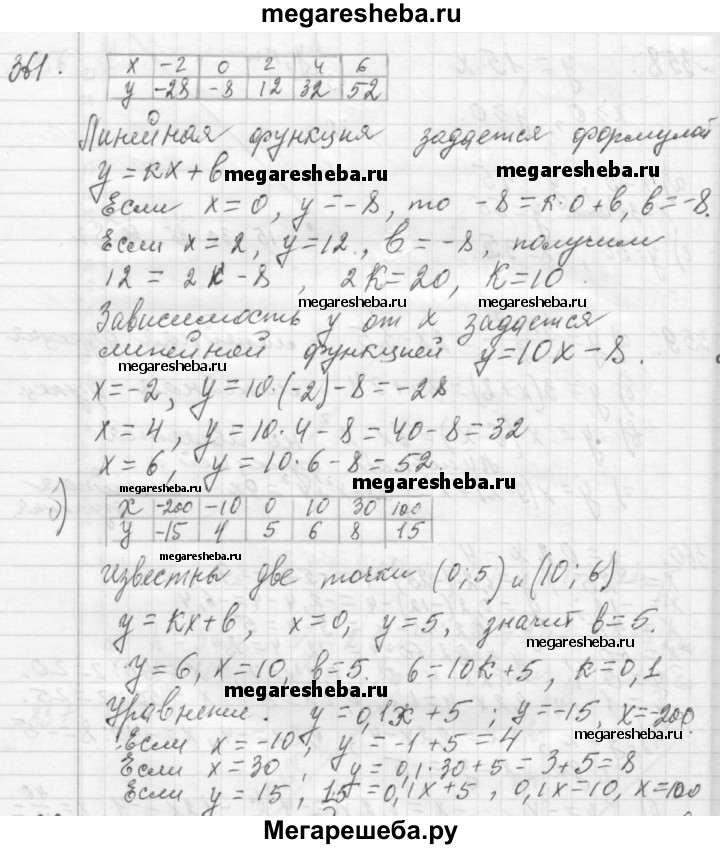 megaresheba.ru
361.
х -2 0 2 4 6
у -28 -8 12 32 52
Линейная функция задается формулой
у = кх + в megaresheba.ru megaresheba.ru
Если х = 0, у = -8, то -8 = к·0 + в, в = -8.
Если х = 2, у = 12, в = -8, получим
12 = 2к - 8, 2к = 20, к = 10.
megaresheba.ru megaresheba.ru
Зависимость у от х задается
линейной функцией у = 10х - 8.
megaresheba.ru
х = -2, у = 10·(-2) - 8 = -28
х = 4, у = 10·4 - 8 = 40 - 8 = 32
х = 6, у = 10·6 - 8 = 52.
megaresheba.ru megaresheba.ru
б)
х -200 -10 0 10 30 100
у -15 4 5 6 8 15
megaresheba.ru
Известны две точки (0; 5) и (10; 6)
у = кх + в, х = 0, у = 5, значит в = 5.
megaresheba.ru
у = 6, х = 10, в = 5. 6 = 10к + 5, к = 0,1
megaresheba.ru
Уравнение: у = 0,1х + 5; у = -15, х = -200.
megaresheba.ru
Если х = -10, у = -1 + 5 = 4
Если х = 30, у = 0,1·30 + 5 = 3 + 5 = 8
Если у = 15, 15 = 0,1х + 5, 0,1х = 10, х = 100
Мегарешеба.ру